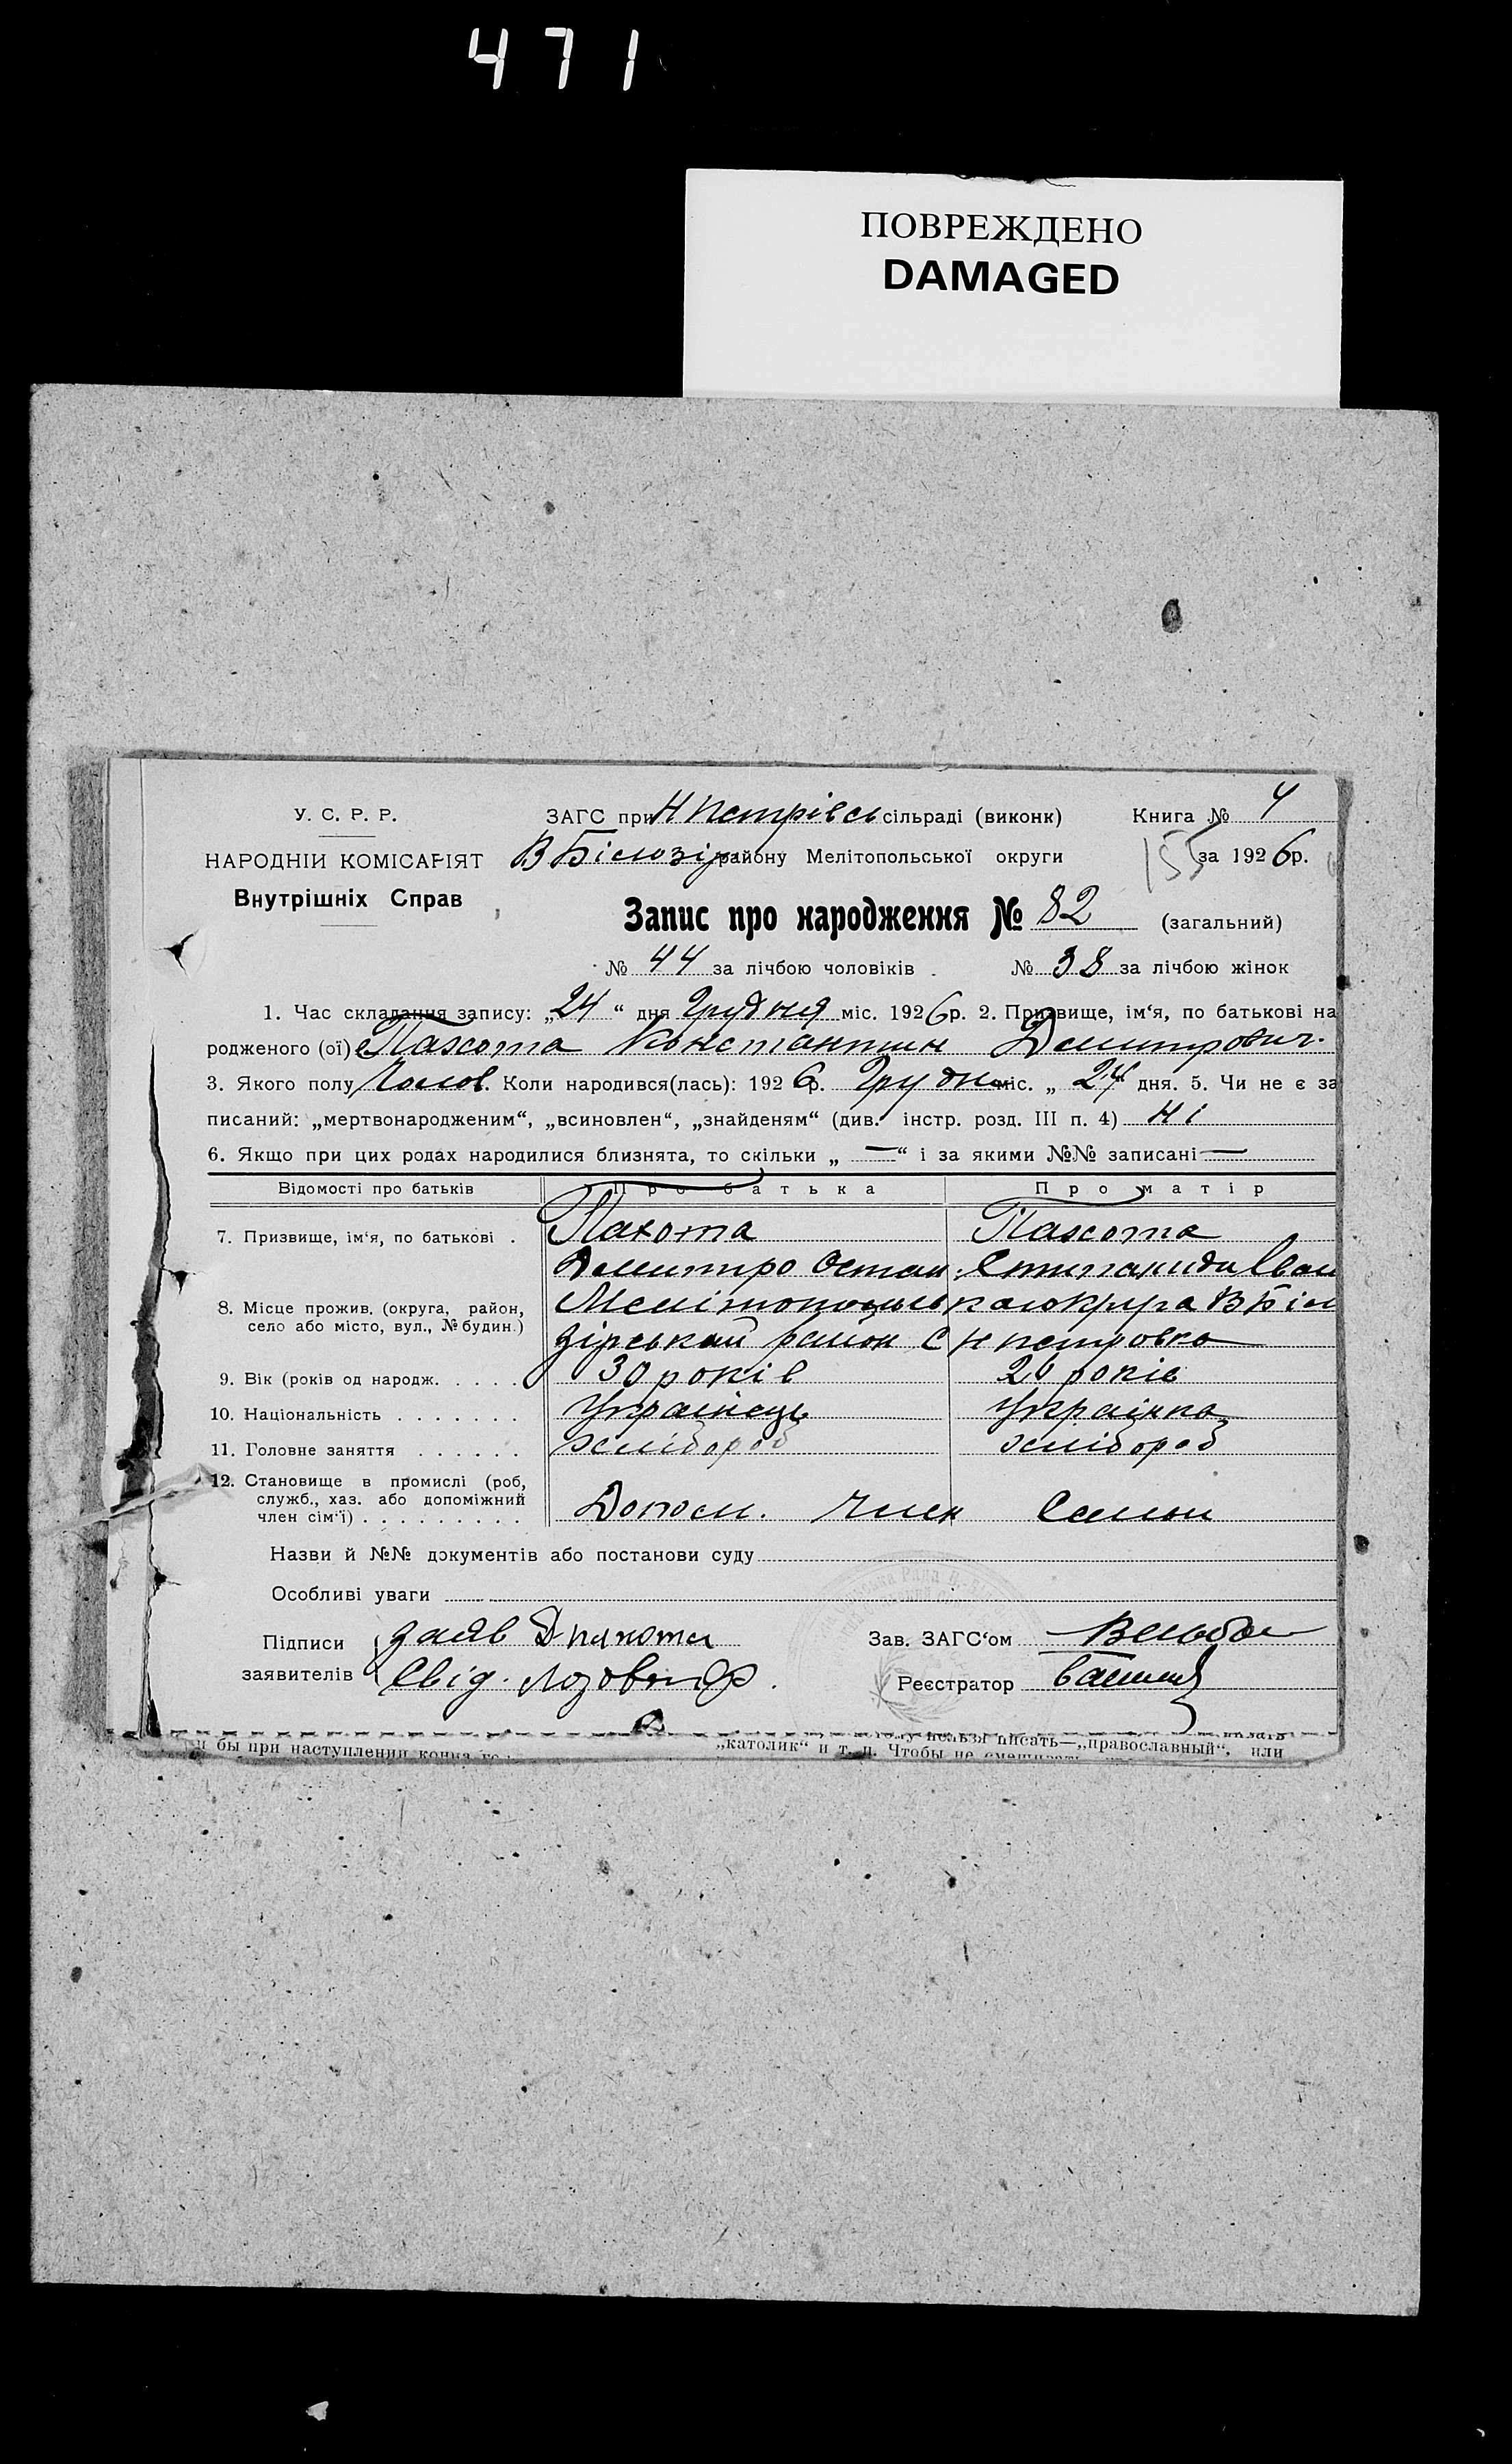 471
ПОВРЕЖДЕНО
DAMAGED
У. С. Р. Р.
НАРОДНІИ КОМІСАРІЯТ
Внутрішніх Справ
ЗАГС при Н Петрівсь сільраді (виконк)
Книга № 4
В Білозір району Мелітопольської округи
155
за 1926 р.
Запис про народження № 82 (загальний)
№ 44 за лічбою чоловіків . № 38 за лічбою жінок
1. Час складання запису: „24“ дня Грудня міс. 1926 р. 2. Призвище, ім‘я, по батькові на
родженого (ої) Пахота Константин Дмитрович.
3. Якого полу Чолов. Коли народився(лась): 1926 р. Грудня міс. „ 24 дня. 5. Чи не є за
писаний: „мертвонародженим“, „всиновлен“, „знайденям“ (див. інстр. розд. III п. 4) Ні
6. Якщо при цих родах народилися близнята, то скільки „ — “ і за якими №№ записані —
Відомості про батьків Про батька Про матір
7. Призвище, ім‘я, по батькові . Пахота Пахота
Дмитро Остап. Степанида Іван
8. Місце прожив. (округа, район, Мелітопольська округа В Біл
село або місто, вул., № будин.) зірський район С Н петровка
9. Вік (років од народж. . . . . 30 років 26 років
10. Національність . . . . . . . Українець Українка
11. Головне заняття . . . . . . хлібороб хлібороб
12. Становище в промислі (роб,
служб., хаз. або допоміжний
член сім‘ї) . . . . . . . . . Допом. член Самои
Назви й №№ документів або постанови суду
Особливі уваги
Підписи
заявителів
заяв Д пахота
Свід. Лозовой Ф.
Зав. ЗАГС‘ом
Реєстратор
бы при наступлении конца
нельзя писать—„православный“, или
„католик“ и т. п. Чтобы не смешивать